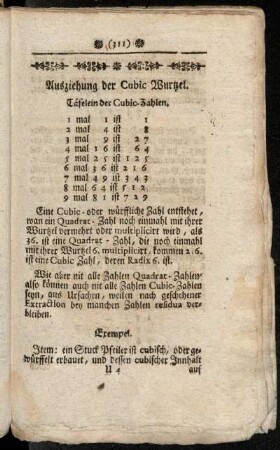 (311)
Ausziehung der Cubic Wurtzel.
Täfelein der Cubic-Zahlen.
1 mal 1 ist 1
2 mal 4 ist 8
3 mal 9 ist 27
4 mal 16 ist 64
5 mal 25 ist 125
6 mal 36 ist 216
7 mal 49 ist 343
8 mal 64 ist 512
9 mal 81 ist 729
Eine Cubic- oder würffliche Zahl entstehet,
wan ein Quadrat-Zahl noch einmahl mit ihrer
Wurtzel vermehrt oder multiplicirt wird, als
36. ist eine Quadrat-Zahl, die noch einmahl
mit ihrer Wurtzel 6. multiplicirt, kommen 2.6.
ist eine Cubic Zahl, deren Radix 6. ist.
Wie aber nit alle Zahlen Quadrat-Zahlen
also können auch nit alle Zahlen Cubic-Zahlen
seyn, aus Ursachen, weilen nach geschehener
Extraction bey manchen Zahlen residua ver-
bleiben.
Exempel.
Item: ein Stuck Pfeiler ist cubisch, oder ge-
würffelt erbauet, und dessen cubischer Innhalt
U 4 auf